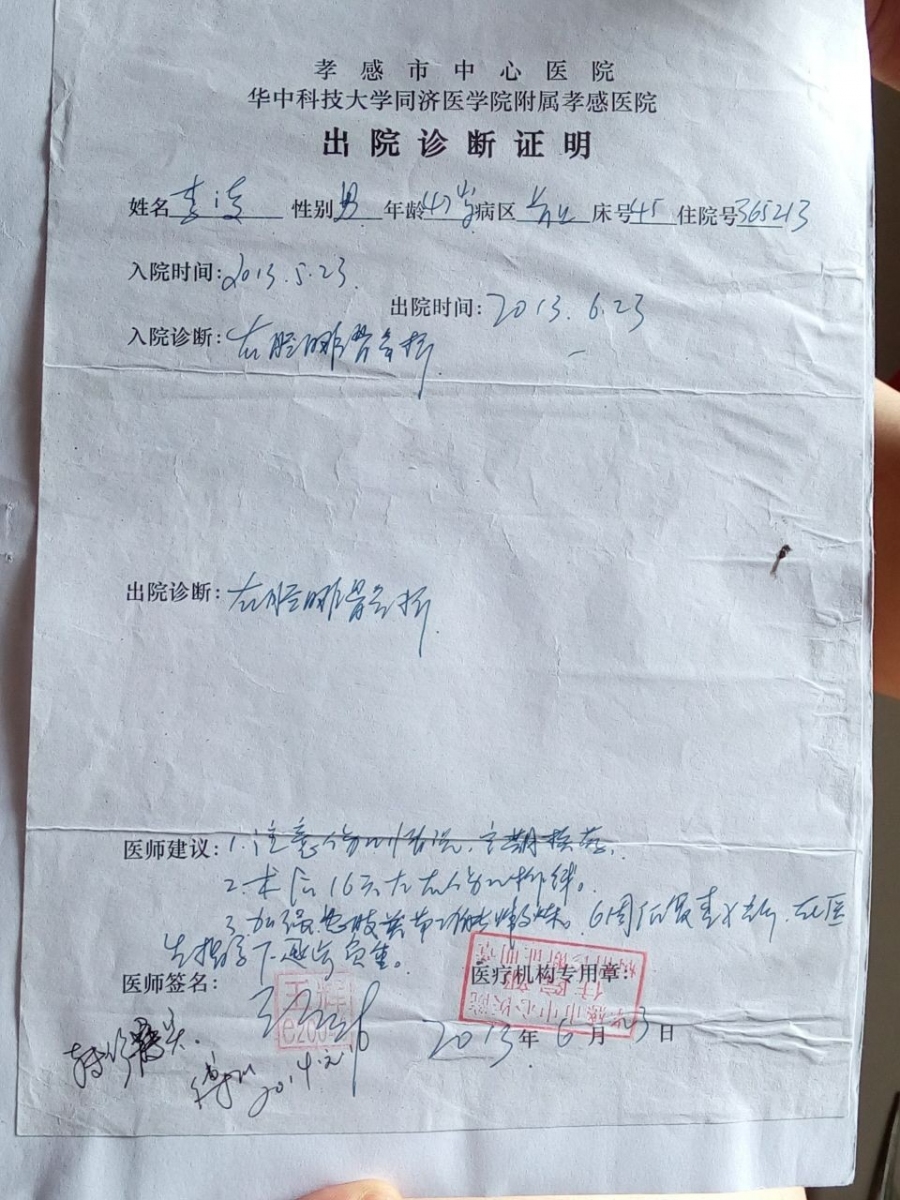 孝感市中心医院
华中科技大学同济医学院附属孝感医院
出院诊断证明
姓名 李 性别 男 年龄 47岁 病区 床号 45 住院号 365213
入院时间: 2013.5.23.
出院时间: 2013.6.23
入院诊断: 左胫腓骨骨折.
出院诊断: 左胫腓骨骨折.
医师建议: 1.注意伤口情况,定期换药.
2.术后16天左右伤口拆线。
3.加强患肢关节功能锻炼。6周后复查X片,在医
生指导下逐步负重。
医师签名: 医疗机构专用章:
王辉
孝感市中心医院
住院部
2013年6月23日